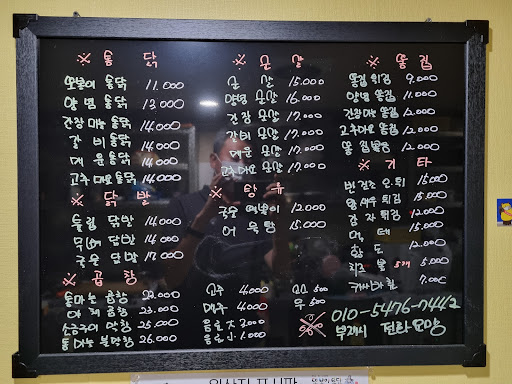 ※ 통 닭
또봉이 통닭 11.000
양념 통닭 13.000
간장마늘 통닭 14.000
갈비 통닭 14.000
매운 통닭 14.000
고추마요 통닭 14.000
※ 닭 발
튤립 닭발 14.000
무뼈 닭발 14.000
국물 닭발 17.000
※ 곱 창
통마늘 곱창 22.000
야채 곱창 23.000
소금구이 막창 25.000
통마늘 불막창 26.000
※ 순 살
순 살 15.000
양념 순살 16.000
간장 순살 17.000
갈비 순살 17.000
매운 순살 17.000
고추마요 순살 17.000
※ 탕 류
국물 떡볶이 12.000
어묵탕 15.000
소주 4.000
맥주 4.000
음료 大 2.000
음료 小 1.000
소스 500
무 500
※ 똥 집
똥집 튀김 9.000
양념 똥집 11.000
간장마늘 똥집 12.000
고추마요 똥집 12.000
12.000
※ 기 타
15.000
15.000
감자튀김 12.000
먹태 15.000
황도 12.000
치즈볼 5개 5.000
7.000
※ 010-5476-7442
부재시 전화요망